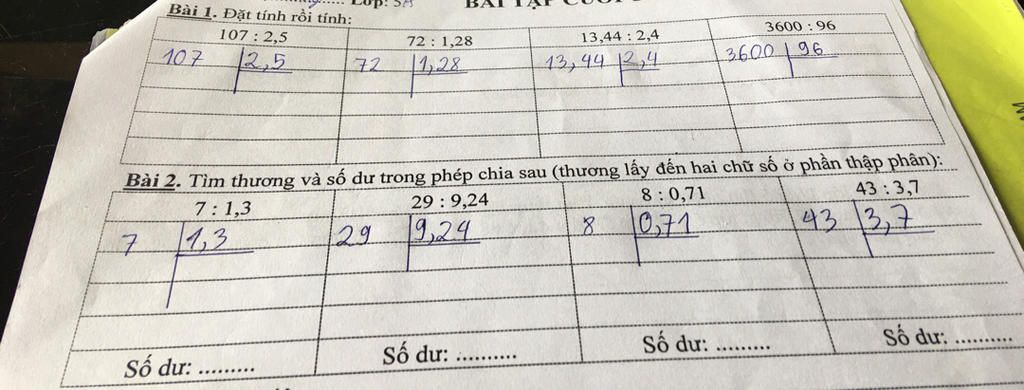 Lớp: 5A
BÀI TẬP CUỐI
Bài 1. Đặt tính rồi tính:
107 : 2,5 72 : 1,28 13,44 : 2,4 3600 : 96
107 2,5 72 1,28 13,44 2,4 3600 96
Bài 2. Tìm thương và số dư trong phép chia sau (thương lấy đến hai chữ số ở phần thập phân):
7 : 1,3 29 : 9,24 8 : 0,71 43 : 3,7
7 1,3 29 9,24 8 0,71 43 3,7
Số dư: ......... Số dư: .......... Số dư: ......... Số dư: ..........